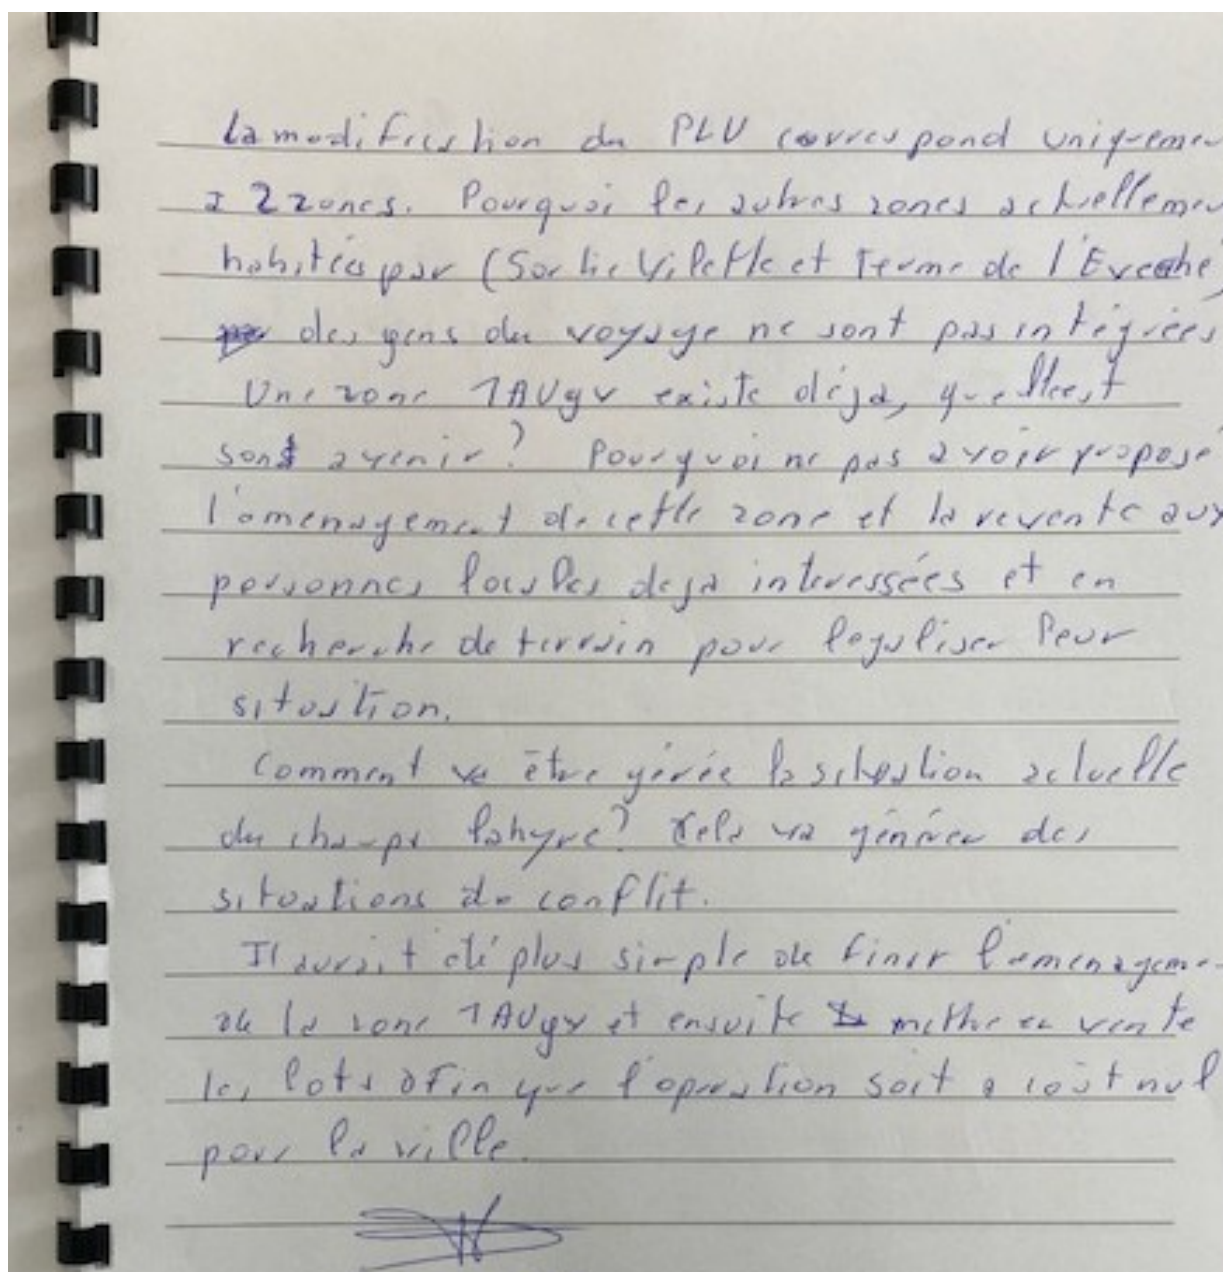 La modification du PLU correspond uniquemen
à 2 zones. Pourquoi les autres zones actuellemen
habitées par (Sortie Vilette et Ferme de l'Eveché)
des gens du voyage ne sont pas intégrées
Une zone 1AUgv existe déjà, quelle est
son avenir? Pourquoi ne pas avoir proposé
l'aménagement de cette zone et la revente aux
personnes locales deja interessées et en
recherche de terrain pour legaliser leur
situation.
Comment va être gérée la situation actuelle
du champs lahyre? Cela va générer des
situations de conflit.
Il aurait été plus simple de finir l'amenageme
de la zone 1AUgv et ensuite mettre en vente
les lots afin que l'opération soit a coût nul
pour la ville.